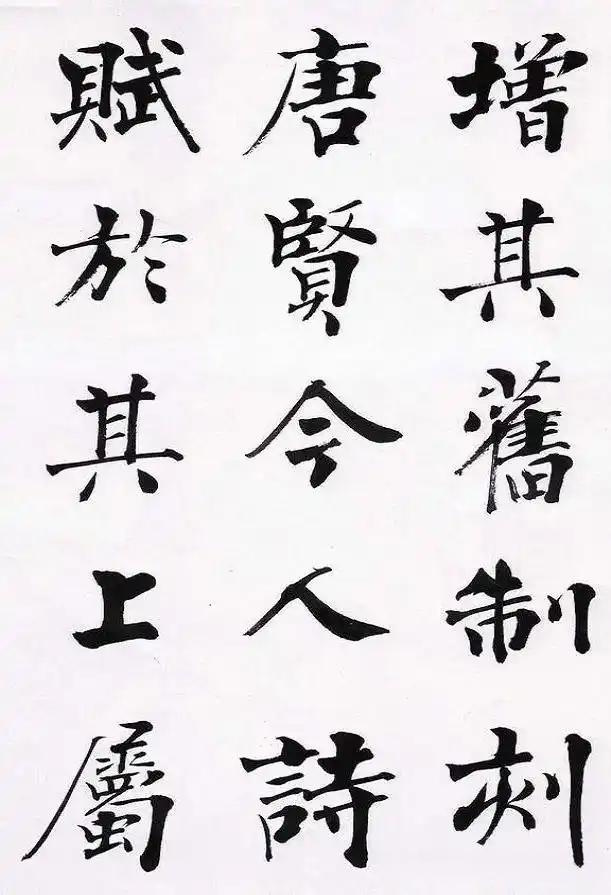 增其舊制刻
唐賢今人詩
賦於其上屬